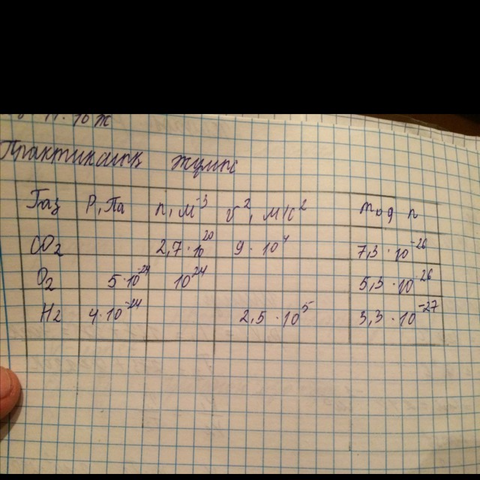 Практикалық жұмыс
Газ P, Па n, м⁻³ v², м/с² m₀, г
CO₂ 2,7·10²⁰ 9·10⁴ 7,3·10⁻²⁶
O₂ 5·10⁻²⁴ 10²⁴ 5,3·10⁻²⁶
H₂ 4·10⁻²⁴ 2,5·10⁵ 3,3·10⁻²⁷